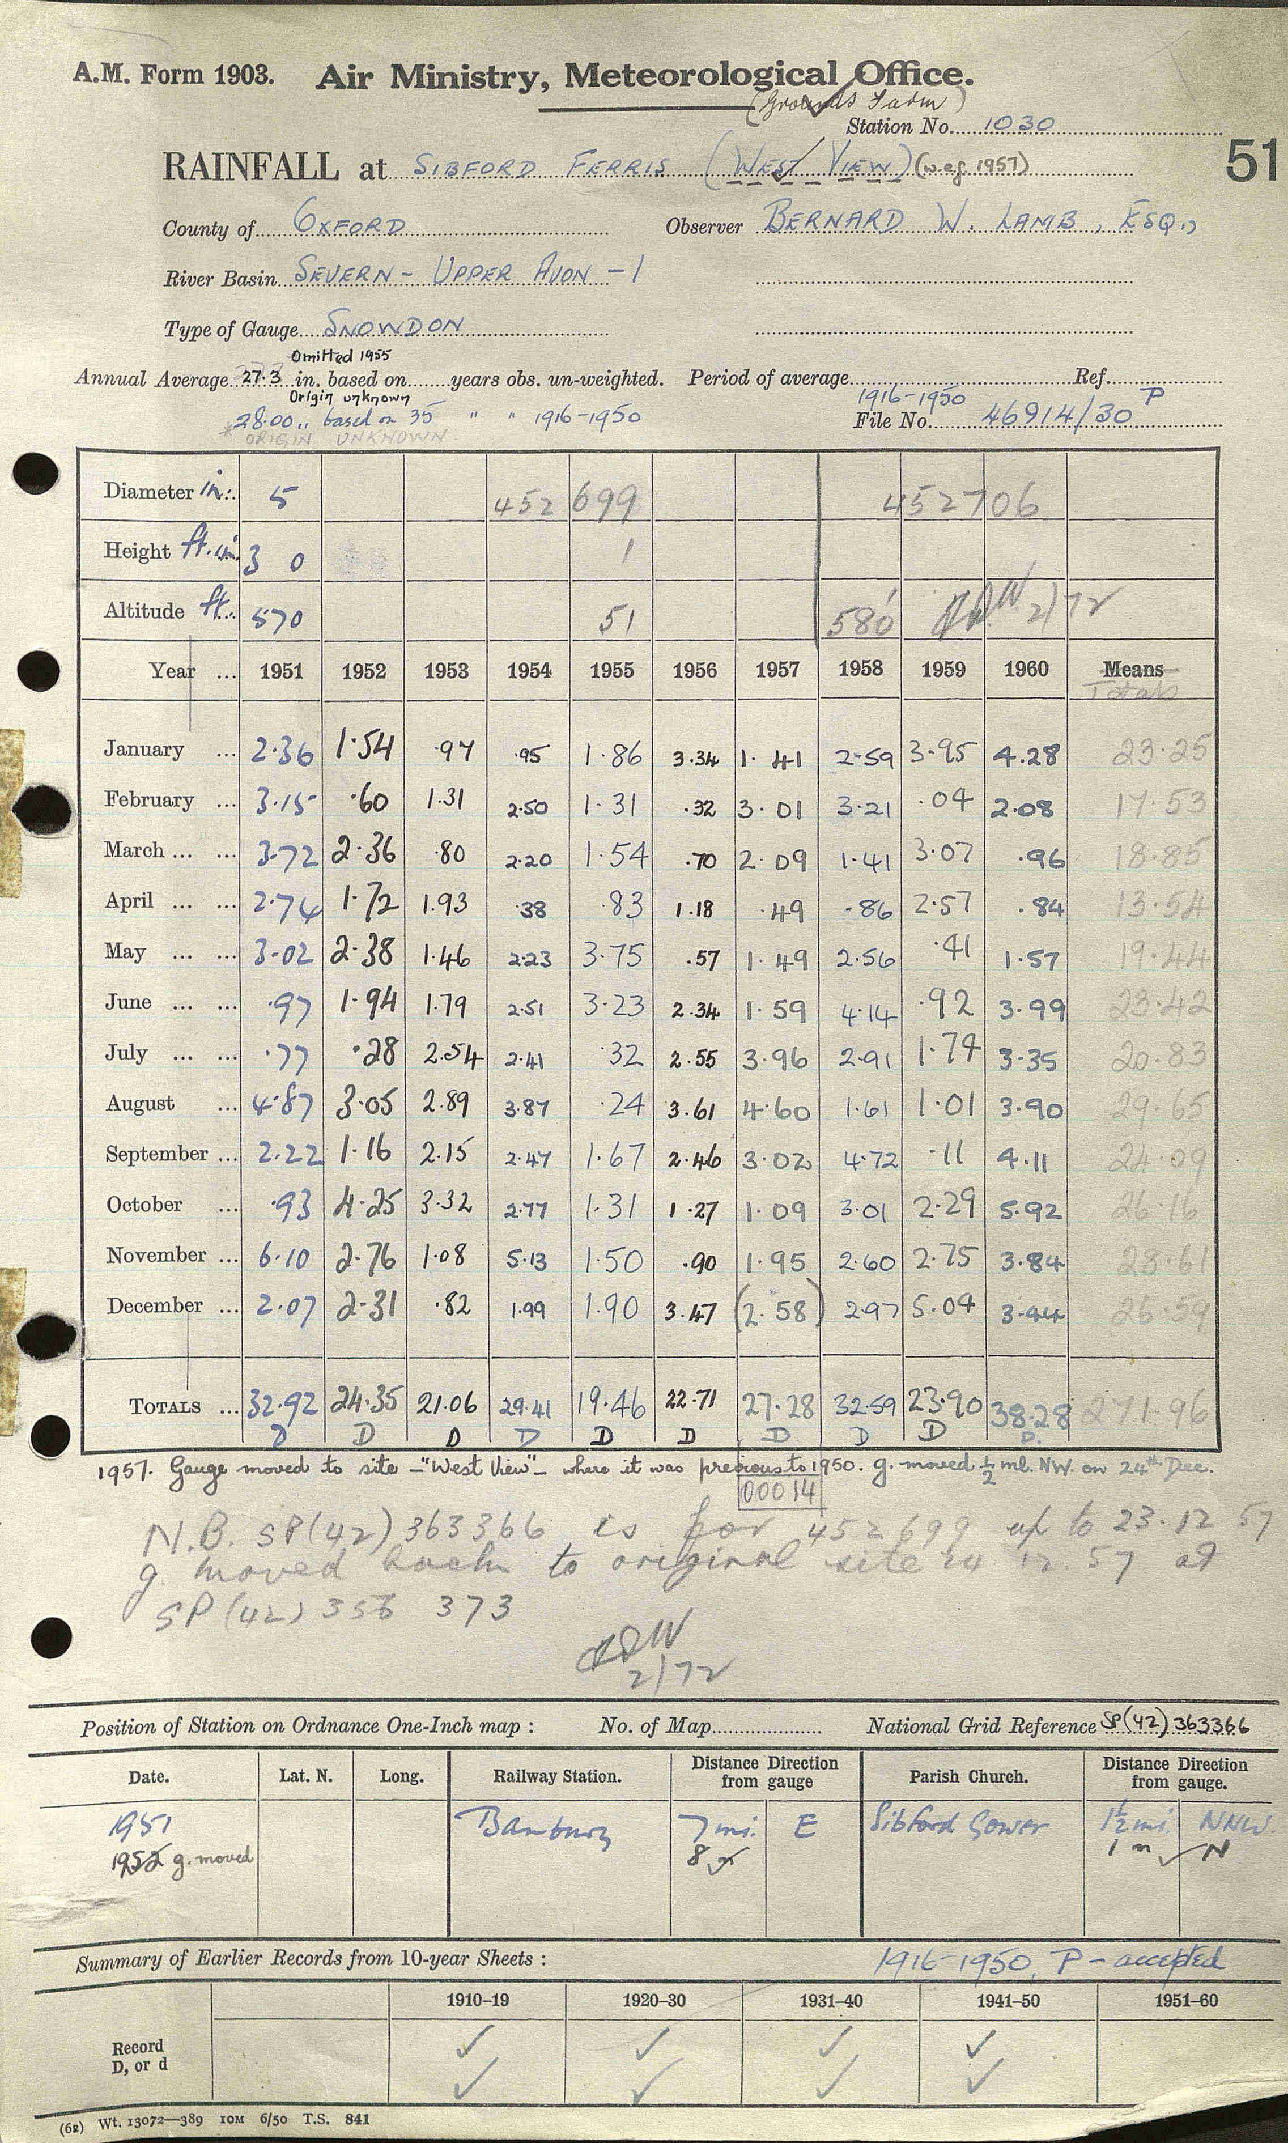 A.M. Form 1903. Air Ministry, Meteorological Office.
(Grounds Farm)
Station No. 1030
RAINFALL at SIBFORD FERRIS (WEST VIEW) (w.e.f. 1957)
51
County of OXFORD Observer BERNARD W. LAMB, ESQ.,
River Basin SEVERN - UPPER AVON - 1
Type of Gauge SNOWDON
Omitted 1955
Annual Average 27.3 in. based on years obs. un-weighted. Period of average Ref.
Origin unknown 1916-1950 P
28.00 ,, based on 35 " " 1916-1950 File No. 46914/30
ORIGIN UNKNOWN
Diameter in. 5 452 699 452706
Height ft. in. 3 0 1
Altitude ft. 570 51 580' 2/72
Year ... 1951 1952 1953 1954 1955 1956 1957 1958 1959 1960 Means
Totals
January ... 2.36 1.54 .97 .95 1.86 3.34 1.41 2.59 3.95 4.28 23.25
February ... 3.15 .60 1.31 2.50 1.31 .32 3.01 3.21 .04 2.08 17.53
March ... ... 3.72 2.36 .80 2.20 1.54 .70 2.09 1.41 3.07 .96 18.85
April ... ... 2.74 1.72 1.93 .38 .83 1.18 .49 .86 2.57 .84 13.54
May ... ... 3.02 2.38 1.46 2.23 3.75 .57 1.49 2.56 .41 1.57 19.44
June ... ... .97 1.94 1.79 2.51 3.23 2.34 1.59 4.14 .92 3.99 23.42
July ... ... .77 .28 2.54 2.41 .32 2.55 3.96 2.91 1.74 3.35 20.83
August ... 4.87 3.05 2.89 3.87 .24 3.61 4.60 1.61 1.01 3.90 29.65
September ... 2.22 1.16 2.15 2.47 1.67 2.46 3.02 4.72 .11 4.11 24.09
October ... .93 4.25 3.32 2.77 1.31 1.27 1.09 3.01 2.29 5.92 26.16
November ... 6.10 2.76 1.08 5.13 1.50 .90 1.95 2.60 2.75 3.84 28.61
December ... 2.07 2.31 .82 1.99 1.90 3.47 (2.58) 2.97 5.04 3.44 26.59
TOTALS ... 32.92 24.35 21.06 29.41 19.46 22.71 27.28 32.59 23.90 38.28 271.96
D D D D D D D D D D.
1957. Gauge moved to site - "West View" - where it was previous to 1950. g. moved ½ ml. NW. on 24th Dec.
00014
N.B. SP(42)363366 is for 452699 up to 23.12.57
g. moved back to original site 24 12. 57 at
SP(42) 356 373
2/72
Position of Station on Ordnance One-Inch map : No. of Map National Grid Reference SP(42) 363366
Date. Lat. N. Long. Railway Station. Distance Direction from gauge Parish Church. Distance Direction from gauge.
1951 Banbury 7 mi. E Sibford Gower 1½ mi. NNW.
1955 g. moved 8 1 m N
Summary of Earlier Records from 10-year Sheets : 1916-1950, P - accepted
1910-19 1920-30 1931-40 1941-50 1951-60
Record ✓ ✓ ✓ ✓
D, or d ✓ ✓ ✓ ✓
(62) Wt. 13072—389 10M 6/50 T.S. 841